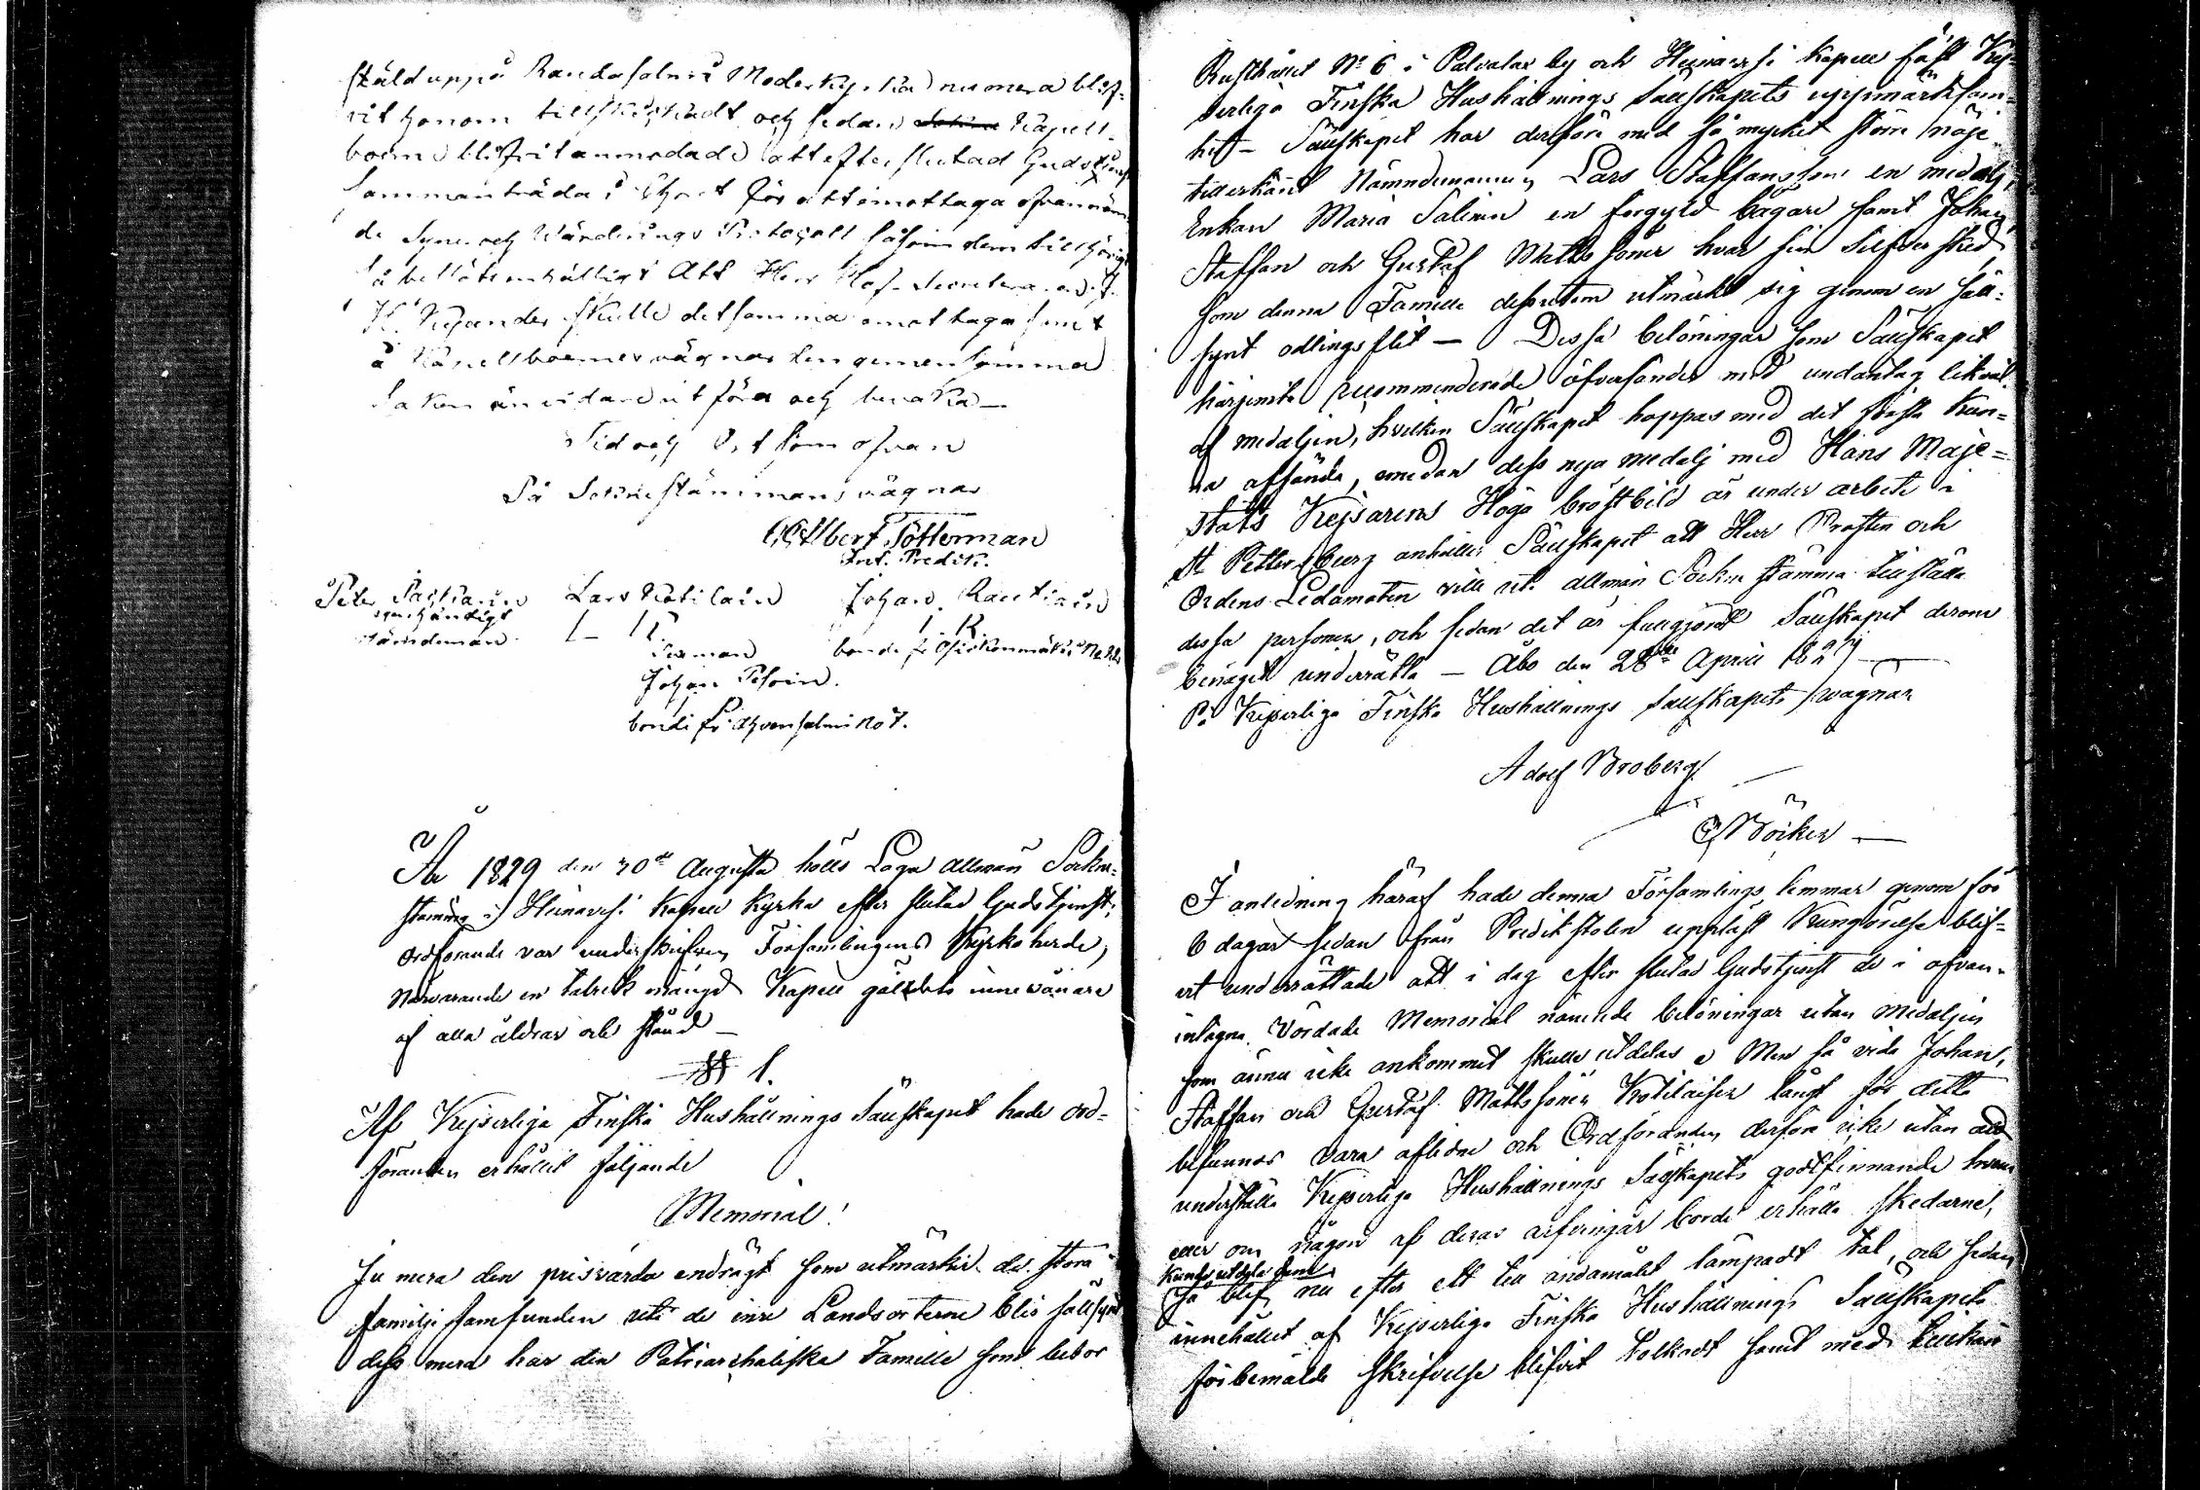 stäld uppå Randasalmi Moderkyrka numera blif-
vit honom tillskickadt och sedan Kapell-
boerne blifvit anmodade att efter slutad Gudstjenst
sammanträda i för att emottaga ofvannämn-
de Syne och Wärderings Protocoll såsom dem tillhörigt
så beslöts enhälligt Att Herr Hof-Secreteraren
skulle detsamma emottaga samt
å Kapellboernes vägnar den gemensamma
saken än vidare utföra och bevaka —
Tid och Ort som ofvan
På Socknestämmans vägnar
Albert Tötterman
Pred:
Peter Lars Kotilain Johan Rautiain
egenhändigt
Nämndeman bonde fr
Johan
bonde fr No 7.
År 1829 den 30de Augusti hölls Laga allmän Sockne-
stämma i Heinävesi Kapell Kyrka efter slutad Gudstjenst;
ordförande var underskrifven Församlingens Kyrkoherde,
närvarande en talrik mängd Kapell gälldets innevånare
af alla åldrar och stånd —
§ 1.
Af Kejserliga Finska Hushållnings Sällskapet hade Ord-
föranden erhållit följande
Memorial!
Ju mera den prisvärda endrägt som utmärker de stora
familje samfunden uti de inre Landsorterne blir sällsynt
dess mera har den Patriarchaliska Familie som bebor
Rusthållet No 6 i Palvalax by och Heinävesi Kapell fäst Kej-
serliga Finska Hushållnings Sällskapets uppmärksam-
het — Sällskapet har derföre med så mycket större nöje
tillerkänt Nämndemannen Lars Staffansson en medalj,
Enkan Maria Salinen en förgyld bägare samt Johan,
Staffan och Gustaf Mattssöner hvar sin Silfver sked,
som denna Familie dessutom utmärkt sig genom en säll-
synt odlingsflit — Dessa belöningar som Sällskapet
härjemte recommenderade öfversänder med undantag likväl
af medaljen, hvilken Sällskapet hoppas med det första kun-
na afsända, emedan dess nya medalj med Hans Maje-
stäts Kejsarens Höga bröstbild är under arbete i
St Pettersburg anhåller Sällskapet att Herr Prosten och
Ordens Ledamoten ville vid allmän Sockne stämma tillställa
dessa personer, och sedan det är fullgjordt Sällskapet derom
benäget underrätta — Åbo den 28de April 1829
På Kejserliga Finska Hushållnings Sällskapets wägnar
Adolf Broberg
C. Böcker —
I anledning häraf hade denna Församlings lemmar genom för
6 dagar sedan från Predikstolen uppläst Kungörelse blif-
vit underrättade att i dag efter slutad Gudstjenst de i ofvan-
intagne Vördade Memorial nämnde belöningar utan Medaljen
som ännu icke ankommit skulle utdelas. Men så vida Johan,
Staffan och Gustaf Mattssöner Kotilaiser långt för detta
befunnos vara aflidne och Ordföranden derföre icke utan att
underställa Kejserliga Hushållnings Sällskapets godtfinnande hvem
eller om någon af deras arfvingar borde erhålla skedarne,
kunde utdela dem
så blef nu efter ett till ändamålet lämpadt tal, och sedan
innehållet af Kejserliga Finska Hushållnings Sällskapets
förbemälde skrifvelse blifvit tolkadt samt med